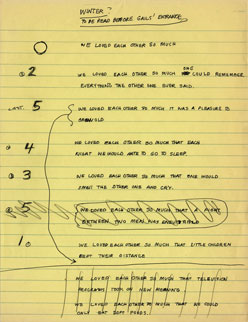 WINTER?
TO BE READ BEFORE GAILS' ENTRANCE
WE LOVED EACH OTHER SO MUCH
2 WE LOVED EACH OTHER SO MUCH ONE COULD REMEMBER
EVERYTHING THE OTHER ONE EVER SAID.
LAST. 5 WE LOVED EACH OTHER SO MUCH IT WAS A PLEASURE TO
4 WE LOVED EACH OTHER SO MUCH THAT EACH
NIGHT WE WOULD HATE TO GO TO SLEEP.
3 WE LOVED EACH OTHER SO MUCH THAT ONE WOULD
THE OTHER ONE AND CRY.
5 WE LOVED EACH OTHER SO MUCH THAT A FIGHT
BETWEEN TWO MEN WAS
1 WE LOVED EACH OTHER SO MUCH THAT LITTLE CHILDREN
KEPT THEIR DISTANCE
WE LOVED EACH OTHER SO MUCH THAT TELEVISION
PROGRAMS TOOK ON NEW MEANING.
WE LOVED EACH OTHER SO MUCH THAT WE COULD
ONLY EAT SOFT FOODS.